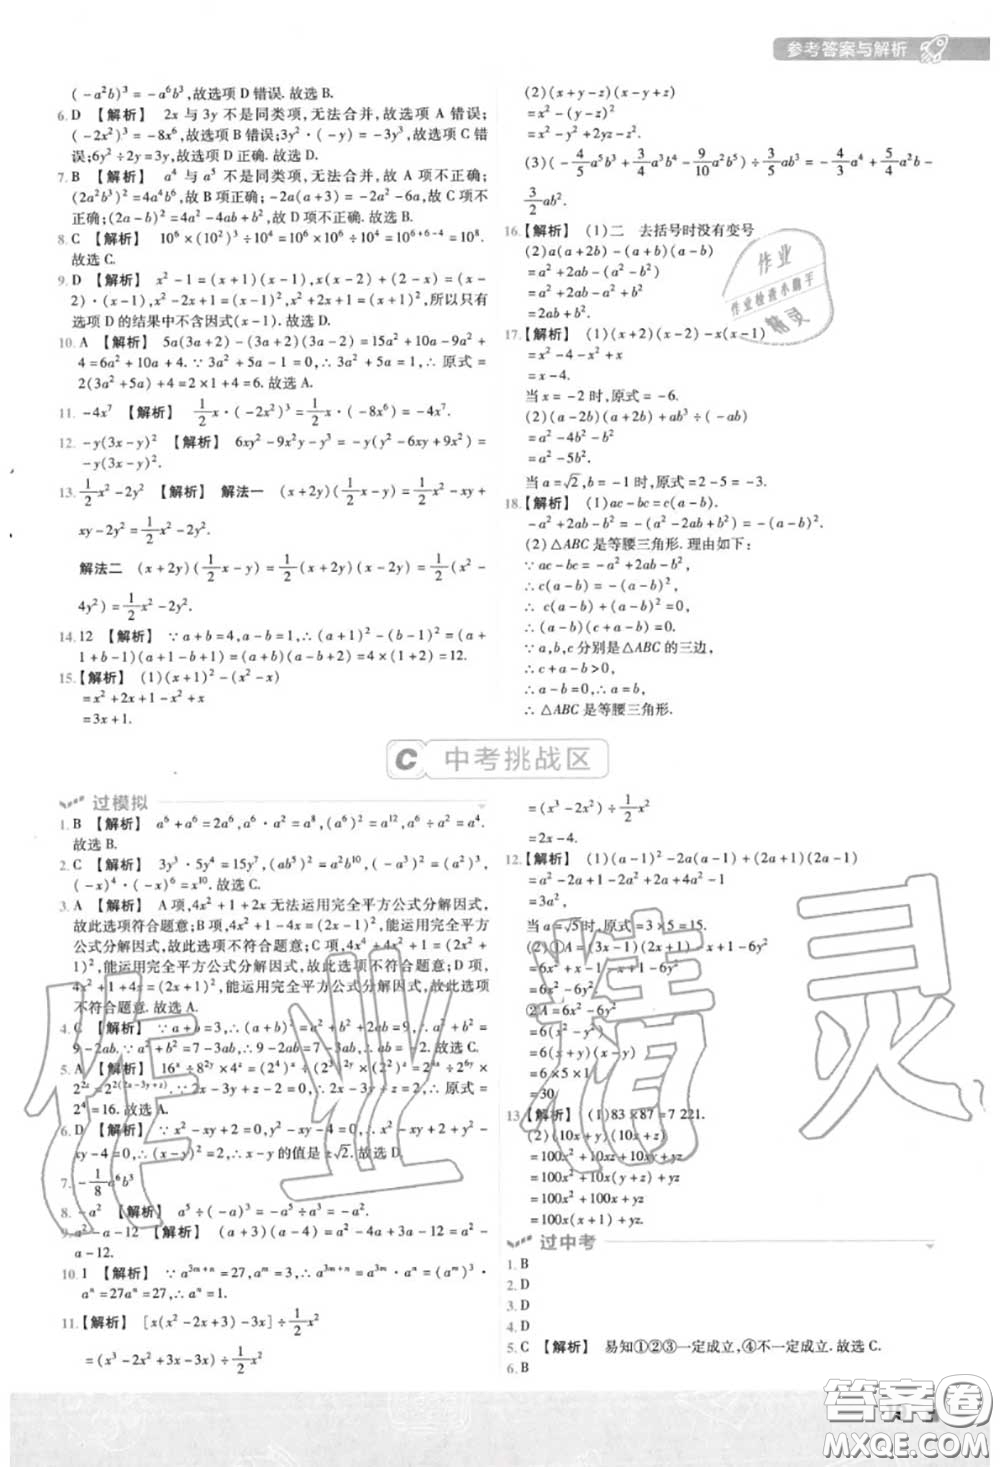 参考答案与解析
(-a²b)³=-a⁶b³,故选项D错误.故选B.
6. D 【解析】 2x与3y不是同类项,无法合并,故选项A错误;
(-2x²)³=-8x⁶,故选项B错误;3y²·(-y)=-3y³,故选项C错
误;6y²÷2y=3y,故选项D正确.故选D.
7. B 【解析】 a⁴与a⁵不是同类项,无法合并,故A项不正确;
(2a²b³)²=4a⁴b⁶,故B项正确;-2a(a+3)=-2a²-6a,故C项不
正确;(2a-b)²=4a²-4ab+b²,故D项不正确.故选B.
8. C 【解析】 10⁶×(10²)³÷10⁴=10⁶×10⁶÷10⁴=10⁶⁺⁶⁻⁴=10⁸.
故选C.
9. D 【解析】 x²-1=(x+1)(x-1),x(x-2)+(2-x)=(x-
2)·(x-1),x²-2x+1=(x-1)²,x²+2x+1=(x+1)²,所以只有
选项D的结果中不含因式(x-1).故选D.
10. A 【解析】 5a(3a+2)-(3a+2)(3a-2)=15a²+10a-9a²+
4=6a²+10a+4.∵3a²+5a-1=0,∴3a²+5a=1,∴原式=
2(3a²+5a)+4=2×1+4=6.故选A.
11. -4x⁷ 【解析】 1/2x·(-2x²)³=1/2x·(-8x⁶)=-4x⁷.
12. -y(3x-y)² 【解析】 6xy²-9x²y-y³=-y(9x²-6xy+y²)=
-y(3x-y)².
13. 1/2x²-2y² 【解析】 解法一 (x+2y)(1/2x-y)=1/2x²-xy+
xy-2y²=1/2x²-2y².
解法二 (x+2y)(1/2x-y)=1/2(x+2y)(x-2y)=1/2(x²-
4y²)=1/2x²-2y².
14. 12 【解析】 ∵a+b=4,a-b=1,∴(a+1)²-(b-1)²=(a+
1+b-1)(a+1-b+1)=(a+b)(a-b+2)=4×(1+2)=12.
15.【解析】 (1)(x+1)²-(x²-x)
=x²+2x+1-x²+x
=3x+1.
(2)(x+y-z)(x-y+z)
=x²-(y-z)²
=x²-y²+2yz-z².
(3)(-4/5a⁵b³+3/4a³b⁴-9/10a²b⁵)÷3/5ab³=-4/3a⁴+5/4a²b-
3/2ab².
16.【解析】 (1)二 去括号时没有变号
(2)a(a+2b)-(a-b)²
=a²+2ab-(a²-2ab+b²)
=a²+2ab-a²+2ab-b²
17.【解析】 (1)(x+2)(x-2)-x(x-1)
=x²-4-x²+x
=x-4.
当x=-2时,原式=-6.
(2)(a-2b)(a+2b)+ab³÷(-ab)
=a²-4b²-b²
=a²-5b².
当a=√2,b=-1时,原式=2-5=-3.
18.【解析】 (1)ac-bc=c(a-b).
-a²+2ab-b²=-(a²-2ab+b²)=-(a-b)².
(2)△ABC是等腰三角形.理由如下:
∵ac-bc=-a²+2ab-b²,
∴c(a-b)=-(a-b)²,
∴c(a-b)+(a-b)²=0,
∴(a-b)(c+a-b)=0.
∵a,b,c分别是△ABC的三边,
∴c+a-b>0,
∴a-b=0,∴a=b,
∴△ABC是等腰三角形.
C 中考挑战区
过模拟
1. B 【解析】 a⁶+a⁶=2a⁶,a⁶·a²=a⁸,(a⁶)²=a¹²,a⁶÷a²=a⁴.
故选B.
2. C 【解析】 3y³·5y⁴=15y⁷,(ab⁵)²=a²b¹⁰,(-a²)³=-a⁶,
(-x)⁴·(-x)⁶=x¹⁰.故选C.
3. A 【解析】 A项,4x²+2x+1无法运用完全平方公式分解因式,
故此选项符合题意;B项,4x²+1-4x=(2x-1)²,能运用完全平方
公式分解因式,故此选项不符合题意;C项,4x⁴+4x²+1=(2x²+
1)²,能运用完全平方公式分解因式,故此选项不符合题意;D项,
4x²+1+4x=(2x+1)²,能运用完全平方公式分解因式,故此选项
不符合题意.故选A.
4. C 【解析】 ∵a+b=3,∴(a+b)²=9,∴a²+b²=
9-2ab.∵a²+b²=7-3ab,∴9-2ab=7-3ab,∴ab=-2.故选C.
5. A 【解析】 16ˣ÷8²ʸ×4ᶻ=(2⁴)ˣ÷(2³)²ʸ×(2²)ᶻ=2⁴ˣ÷2⁶ʸ×
∵2x-3y+z-2=0,∴2x-3y+z=2,∴原式=
2⁴=16.故选A.
6. D 【解析】 ∵x²-xy+2=0,y²-xy-4=0,∴x²-xy+2+y²-
xy-4=0,∴(x-y)²=2,∴x-y的值是±√2.故选D.
7. -1/8a⁶b³
8. -a² 【解析】 a⁵÷(-a)³=-a⁵÷a³=-a².
9. a²-a-12 【解析】 (a+3)(a-4)=a²-4a+3a-12=a²-
a-12.
10. 1 【解析】 ∵a³ᵐ⁺ⁿ=27,aᵐ=3,∴a³ᵐ⁺ⁿ=a³ᵐ·aⁿ=(aᵐ)³·
aⁿ=27aⁿ=27,∴aⁿ=1.
11.【解析】 [x(x²-2x+3)-3x]÷1/2x²
=(x³-2x²+3x-3x)÷1/2x²
=(x³-2x²)÷1/2x²
=2x-4.
12.【解析】 (1)(a-1)²-2a(a-1)+(2a+1)(2a-1)
=a²-2a+1-2a²+2a+4a²-1
=3a².
当a=√5时,原式=3×5=15.
(2)①A=(3x-1)(2x+1)-x+1-6y²
=6x²+x-1-x+1-6y²
=6x²-6y².
②A=6x²-6y²
=6(x²-y²)
=6(x+y)(x-y)
=6×5×1
=30.
13.【解析】 (1)83×87=7 221.
(2)(10x+y)(10x+z)
=100x²+10xz+10xy+yz
=100x²+10x(y+z)+yz
=100x²+100x+yz
=100x(x+1)+yz.
过中考
1. B
2. D
3. D
4. D
5. C 【解析】 易知①②③一定成立,④不一定成立.故选C.
6. B
作业
精灵
作业精灵
答案圈
MXQE.COM